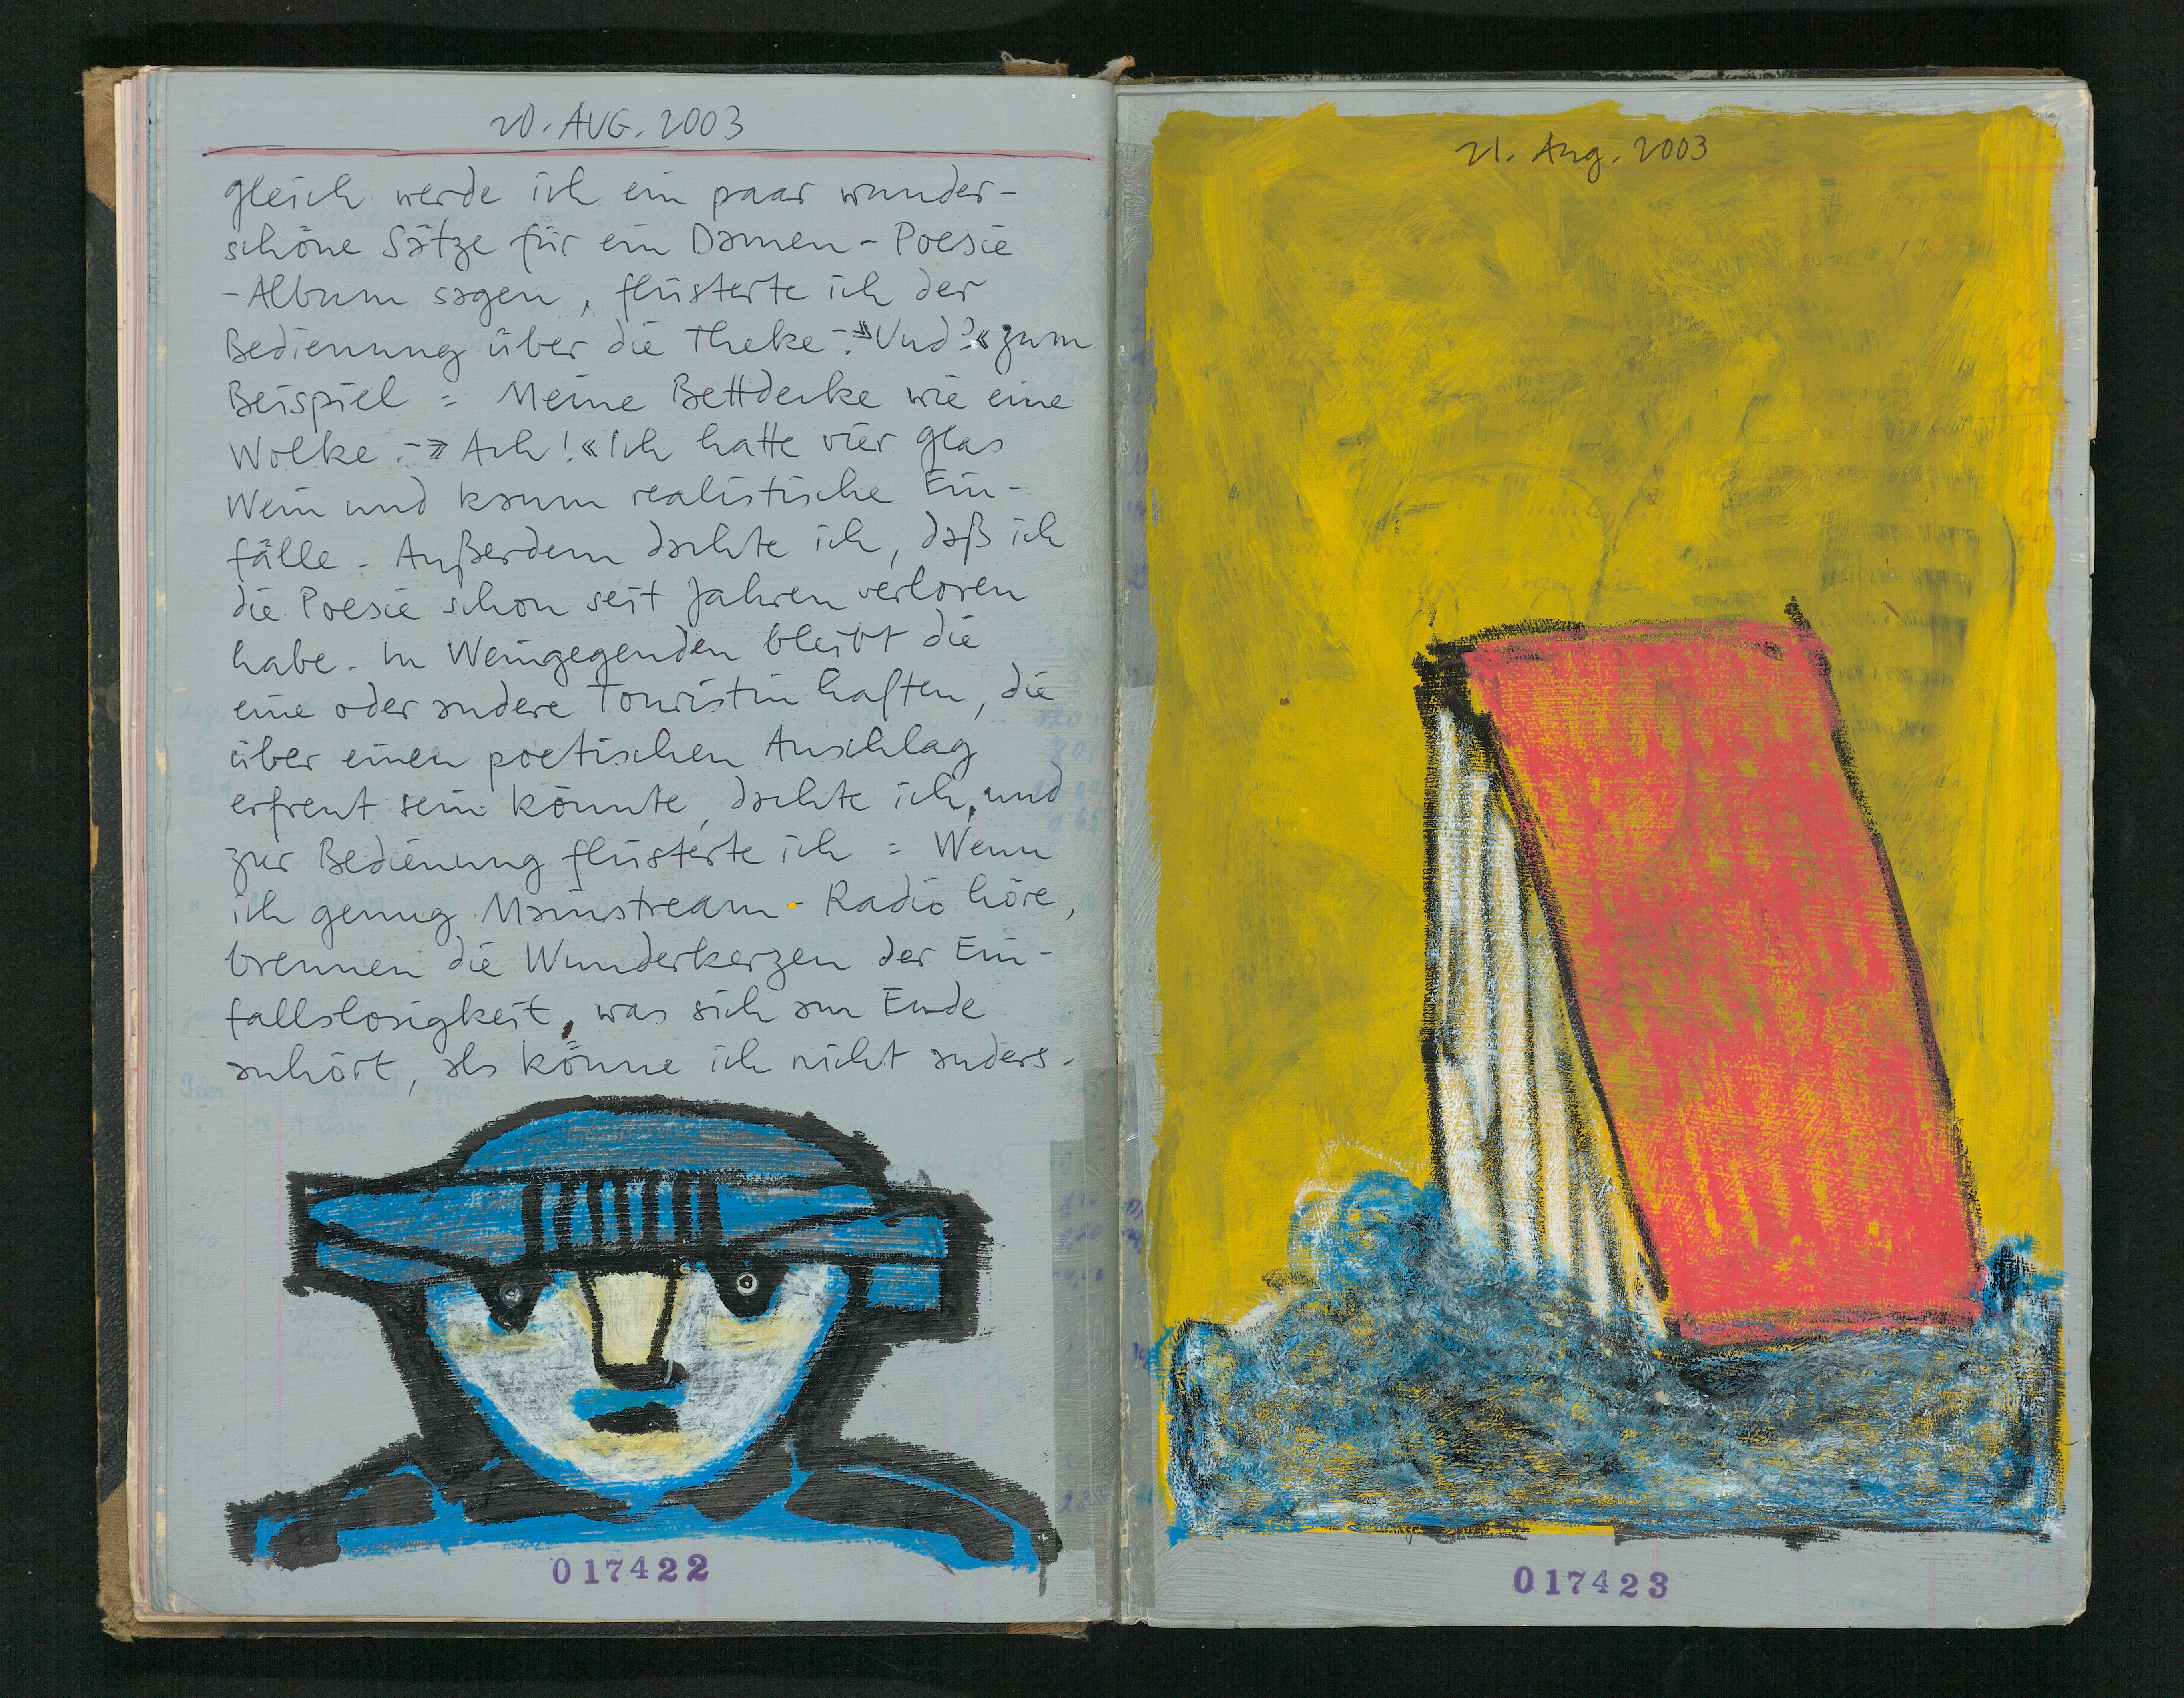 20. AUG. 2003
gleich werde ich ein paar wunder-
schöne Sätze für ein Damen-Poesie
-Album sagen, flüsterte ich der
Bedienung über die Theke. - »Und?« zum
Beispiel: Meine Bettdecke wie eine
Wolke. - » Ach! « Ich hatte vier Glas
Wein und kaum realistische Ein-
fälle. Außerdem dachte ich, daß ich
die Poesie schon seit Jahren verloren
habe. In Weingegenden bleibt die
eine oder andere Touristin haften, die
über einen poetischen Anschlag
erfreut sein könnte, dachte ich, und
zur Bedienung flüsterte ich: Wenn
ich genug Mainstream-Radio höre,
brennen die Wunderkerzen der Ein-
fallslosigkeit, was sich am Ende
anhört, als könne ich nicht anders.
017422
21. Aug. 2003
017423